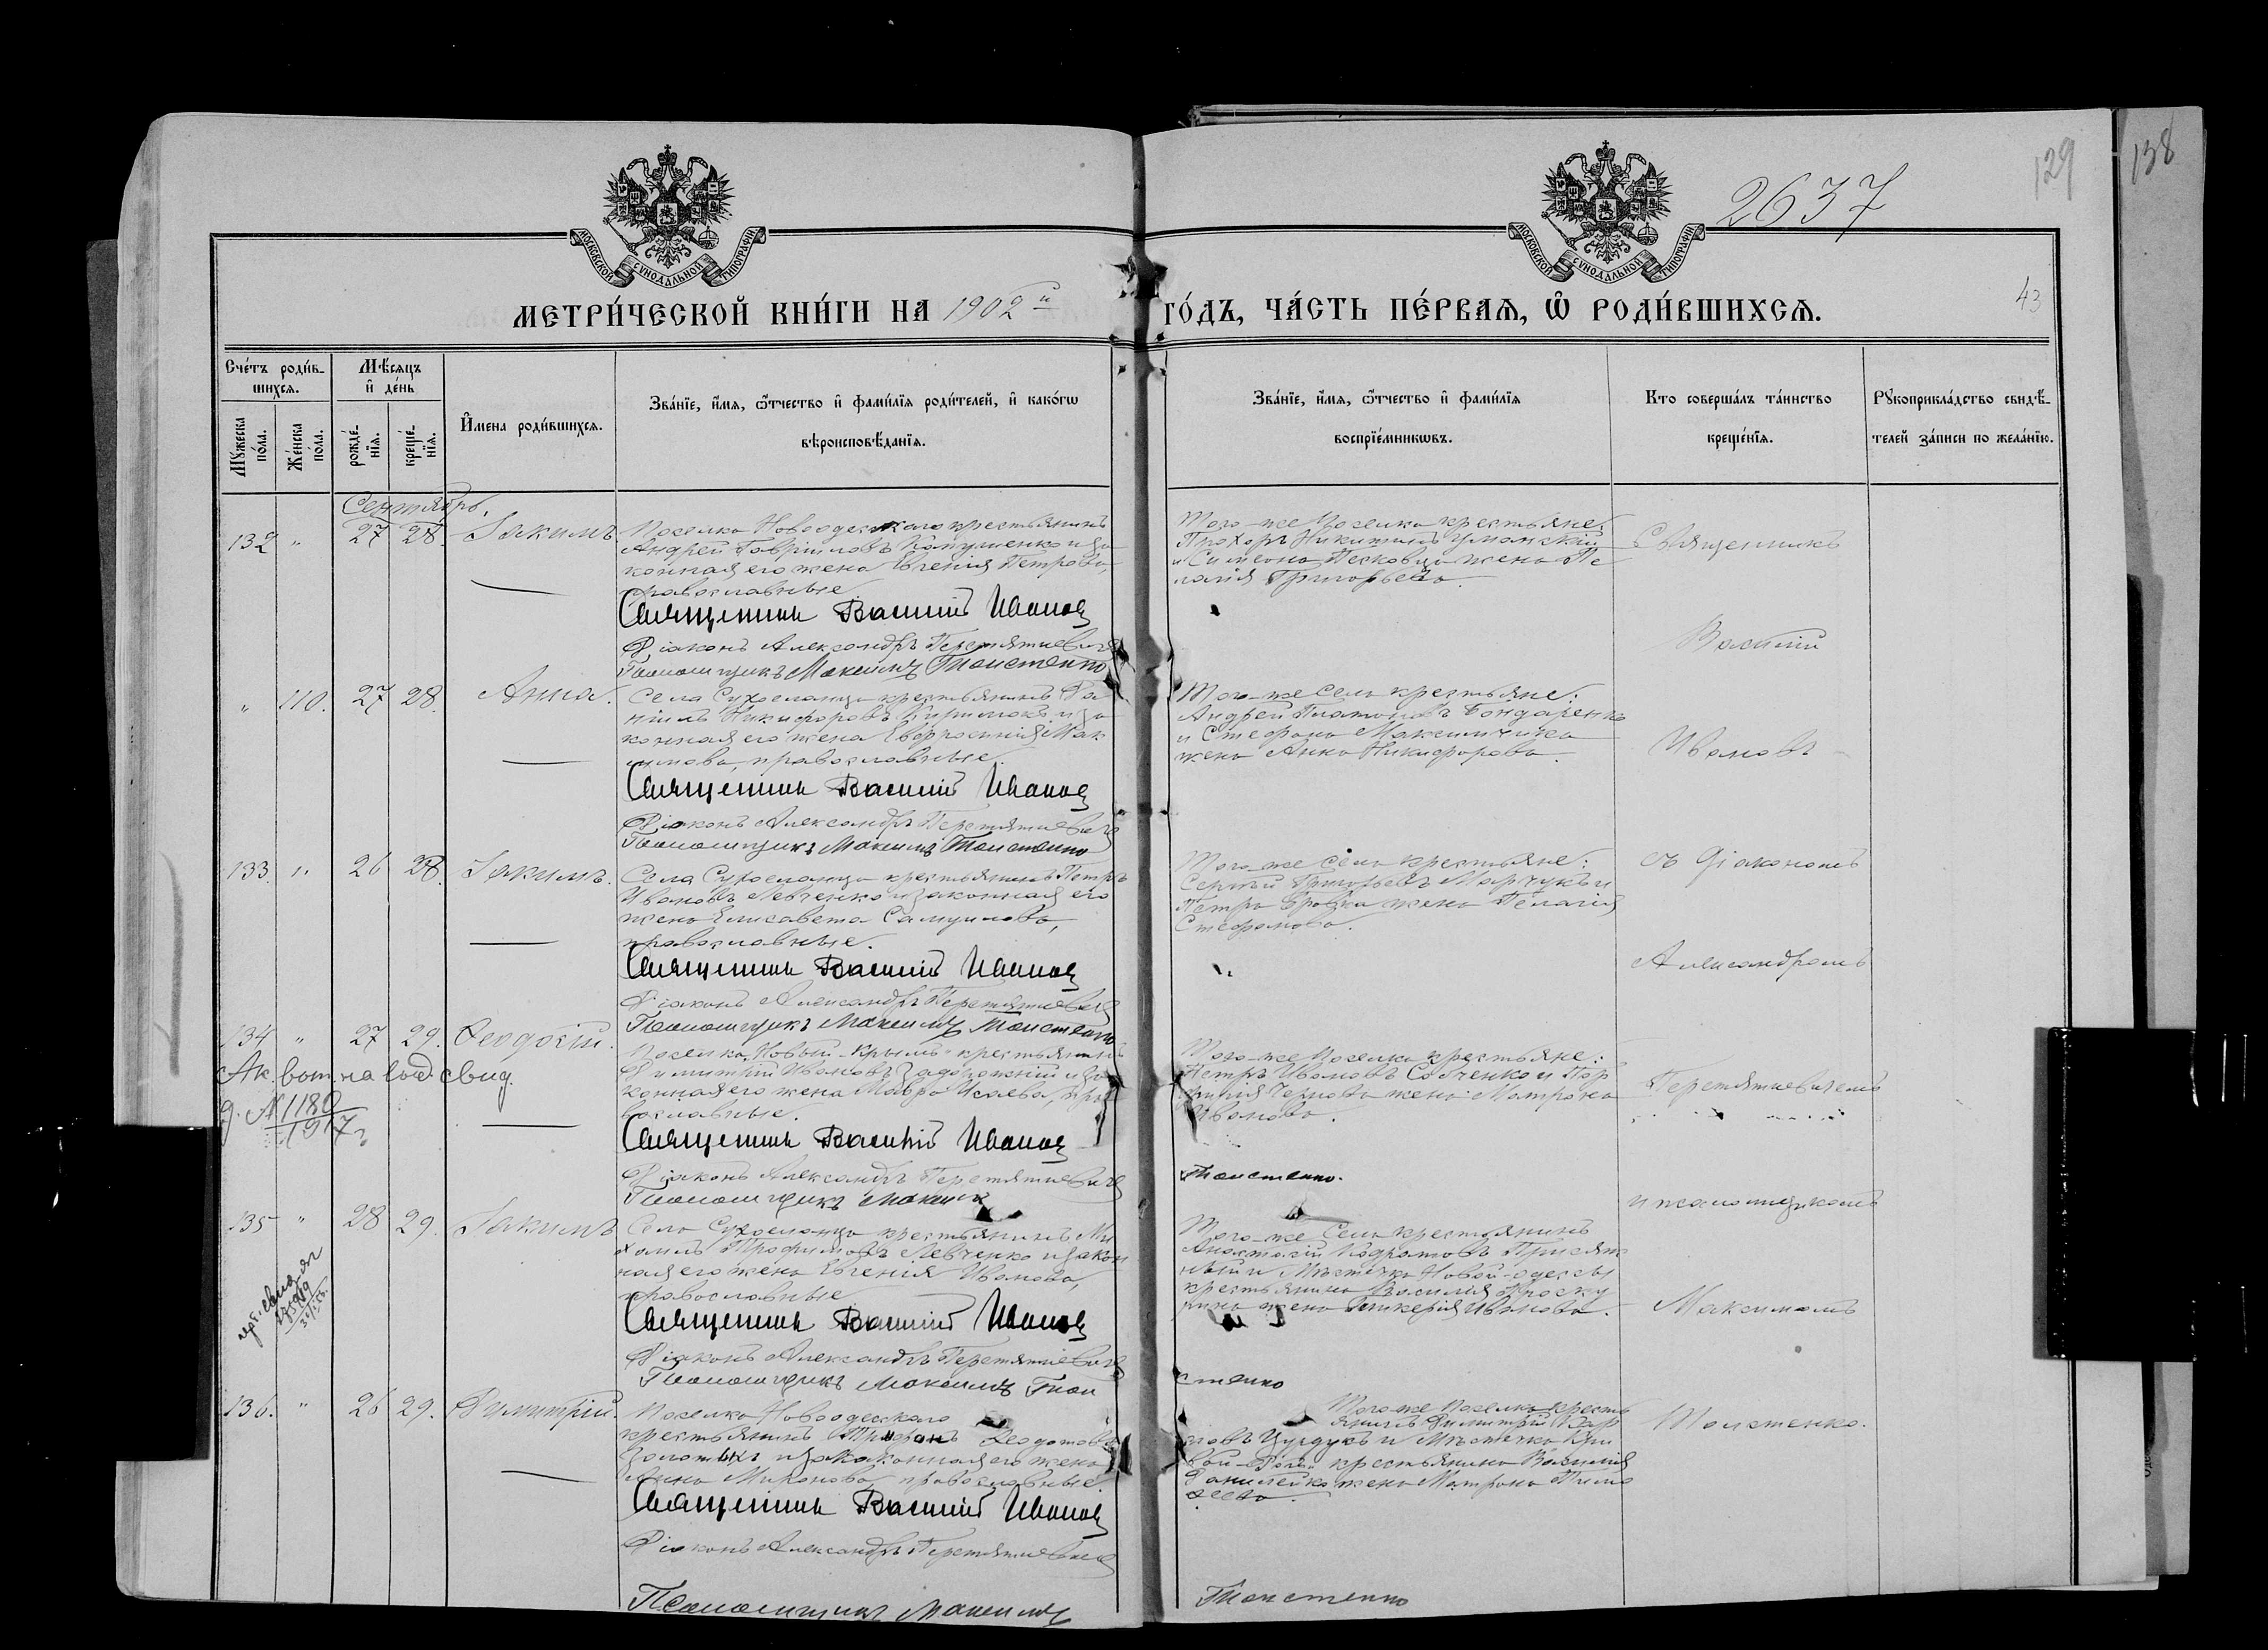 2637
129
138
43
МОСКОВСКОЙ СѴНОДАЛЬНОЙ ТИПОГРАФІИ
МОСКОВСКОЙ СѴНОДАЛЬНОЙ ТИПОГРАФІИ
МЕТРИ́ЧЕСКОЙ КНИ́ГИ НА 1902й ГО́ДЪ, ЧА́СТЬ ПЕ́РВАЯ, Ѡ РОДИ́ВШИХСЯ.
Сче́тъ роди́в-
шихся.
Мѣ́сяцъ
и де́нь
Мꙋ́жеска по́ла.
Же́нска пола.
рожде́-нїя.
креще́-нїя.
И́мена роди́вшихся.
Зва́нїе, и́мя, ѻ́тчество и фами́лїя роди́телей, и како́гѡ
вѣроисповѣ́данїя.
Зва́нїе, и́мя, ѻ́тчество и фами́лїя
воспрїе́мникѡвъ.
Кто соверша́лъ та́инство
креще́нїя.
Рꙋкоприкла́дство свидѣ́-
телей за́писи по жела́нїю.
Сентябрь.
132 " 27 28 Іакимъ.
Поселка Новоодесскаго крестьянинъ
Андрей Гавріиловъ и за-
конная его жена Евгенія Петрова,
православные.
Священникъ Василій Иванов
Діаконъ Александръ Перетяткевичъ
Псаломщикъ Максимъ Толстенко
Того-же поселка крестьяне:
Прохоръ Никитинъ Уманскій
и Симеона жена Пе
лагія Григорьева.
Священникъ
Василій
" 110. 27 28. Анна.
Села Сухоеланца крестьянинъ Да
ніилъ Никифоровъ и за-
конная его жена Евфросинія Мак
симова, православные.
Священникъ Василій Иванов
Діаконъ Александръ Перетяткевичъ
Псаломщикъ Максимъ Толстенко
Того-же села крестьяне:
Андрей Платоновъ Бондаренко
и Стефана
жена Анна Никифорова.
Ивановъ
133. " 26 28. Іакимъ.
Села Сухоеланца крестьянинъ Петръ
Ивановъ Левченко и законная его
жена Елисавета Самуилова,
православные.
Священникъ Василій Иванов
Діаконъ Александръ Перетяткевичъ
Псаломщикъ Максимъ Толстенко
Того-же села крестьяне:
Сергій Григорьевъ Марчукъ и
Петра жена Пелагія
Стефанова.
съ діакономъ
Александромъ
134 " 27 29. Ѳеодосій.
Поселка "Новый-Крымъ" крестьянинъ
Димитрій Ивановъ Задорожній и за-
конная его жена Мавра Исаева, пра
вославные.
Священникъ Василій Иванов
Діаконъ Александръ Перетяткевичъ
Псаломщикъ Максимъ
Толстенко.
свид.
№ 1180
1917г
Того-же поселка крестьяне:
Петръ Ивановъ и Пор
фирія жена Матрона
Иванова.
Перетяткевичемъ
и псаломщикомъ
135 " 28 29. Іакимъ
Села Сухоеланца крестьянинъ Ми
хаилъ Трофимовъ Левченко и закон
ная его жена Евгенія Иванова,
православные.
Священникъ Василій Иванов
Діаконъ Александръ Перетяткевичъ
Псаломщикъ Максимъ Тол
стенко
Того-же села крестьянинъ
Анастасій Присяж
ный и мѣстечка Новой-Одессы
крестьянина Василія Проску
рина жена Гликерія Иванова.
Максимомъ
136. " 26 29. Димитрій.
Поселка Новоодесскаго
крестьянинъ
и законная его жена
Анна Миронова, православные.
Священникъ Василій Иванов
Діаконъ Александръ Перетяткевичъ
Псаломщикъ Максимъ
Толстенко
Того-же поселка кресть
янинъ Димитрій Кар
повъ и мѣстечка Кри
вой-Рогъ крестьянина Василія
жена Матрона Тимо
ѳеева.
Толстенко.